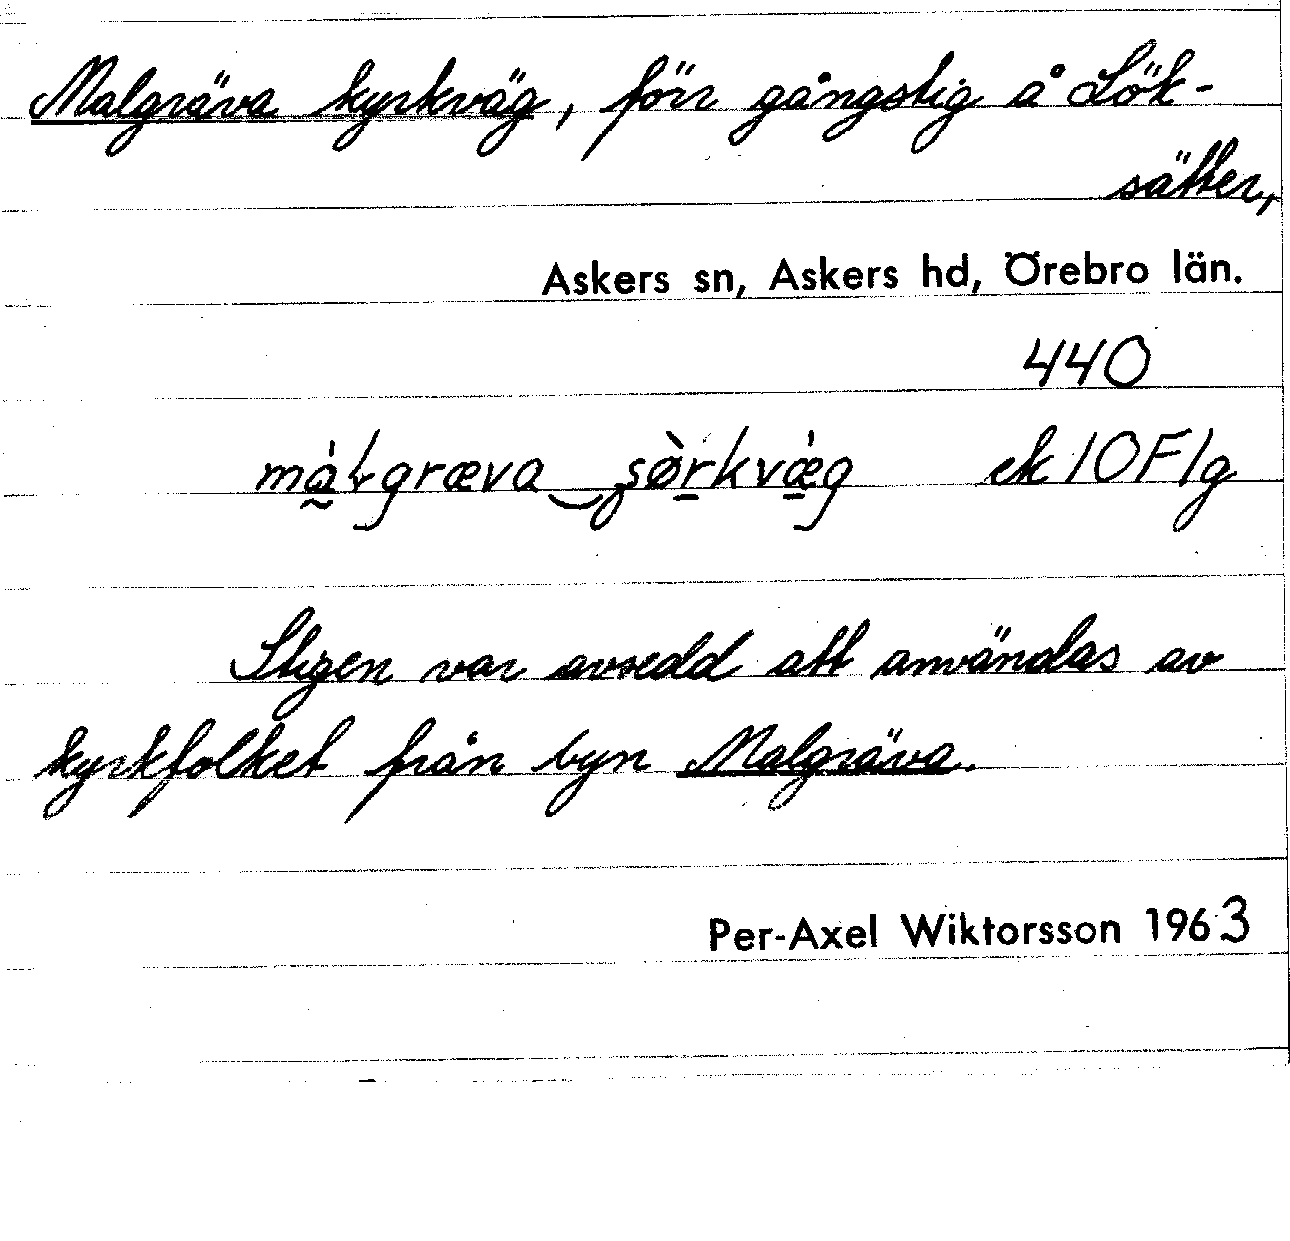 Malgräva kyrkväg, förr gångstig å Lök-
sätter,
Askers sn, Askers hd, Örebro län.
440
ek 10F1g
Stigen var avsedd att användas av
kyrkfolket från byn Malgräva.
Per-Axel Wiktorsson 1963